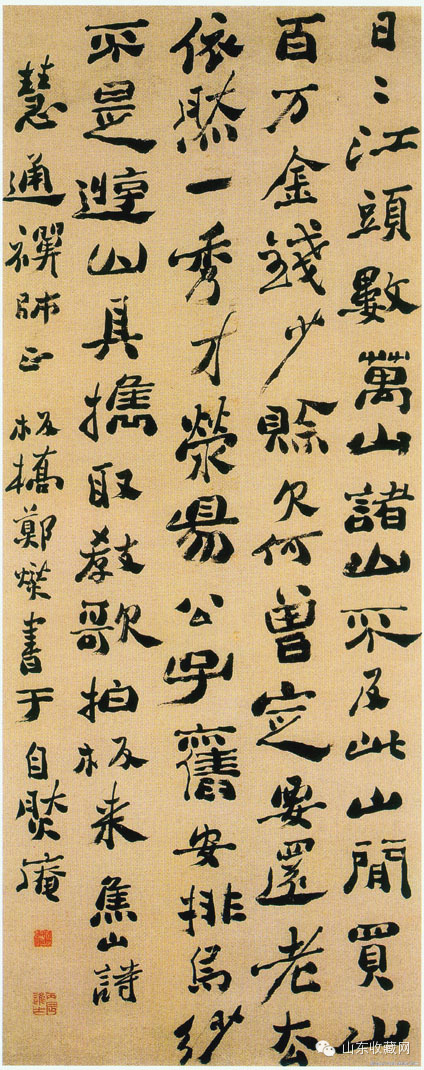 日〻江頭數萬山諸山不及此山閒買山
百万金錢少賒欠何曾定要還老去
依然一秀才滎昜公子舊安排烏紗
不是遊山具攜取教歌拍板来焦山詩
慧通禪師正 板橋鄭燮書于自然庵
山东收藏网